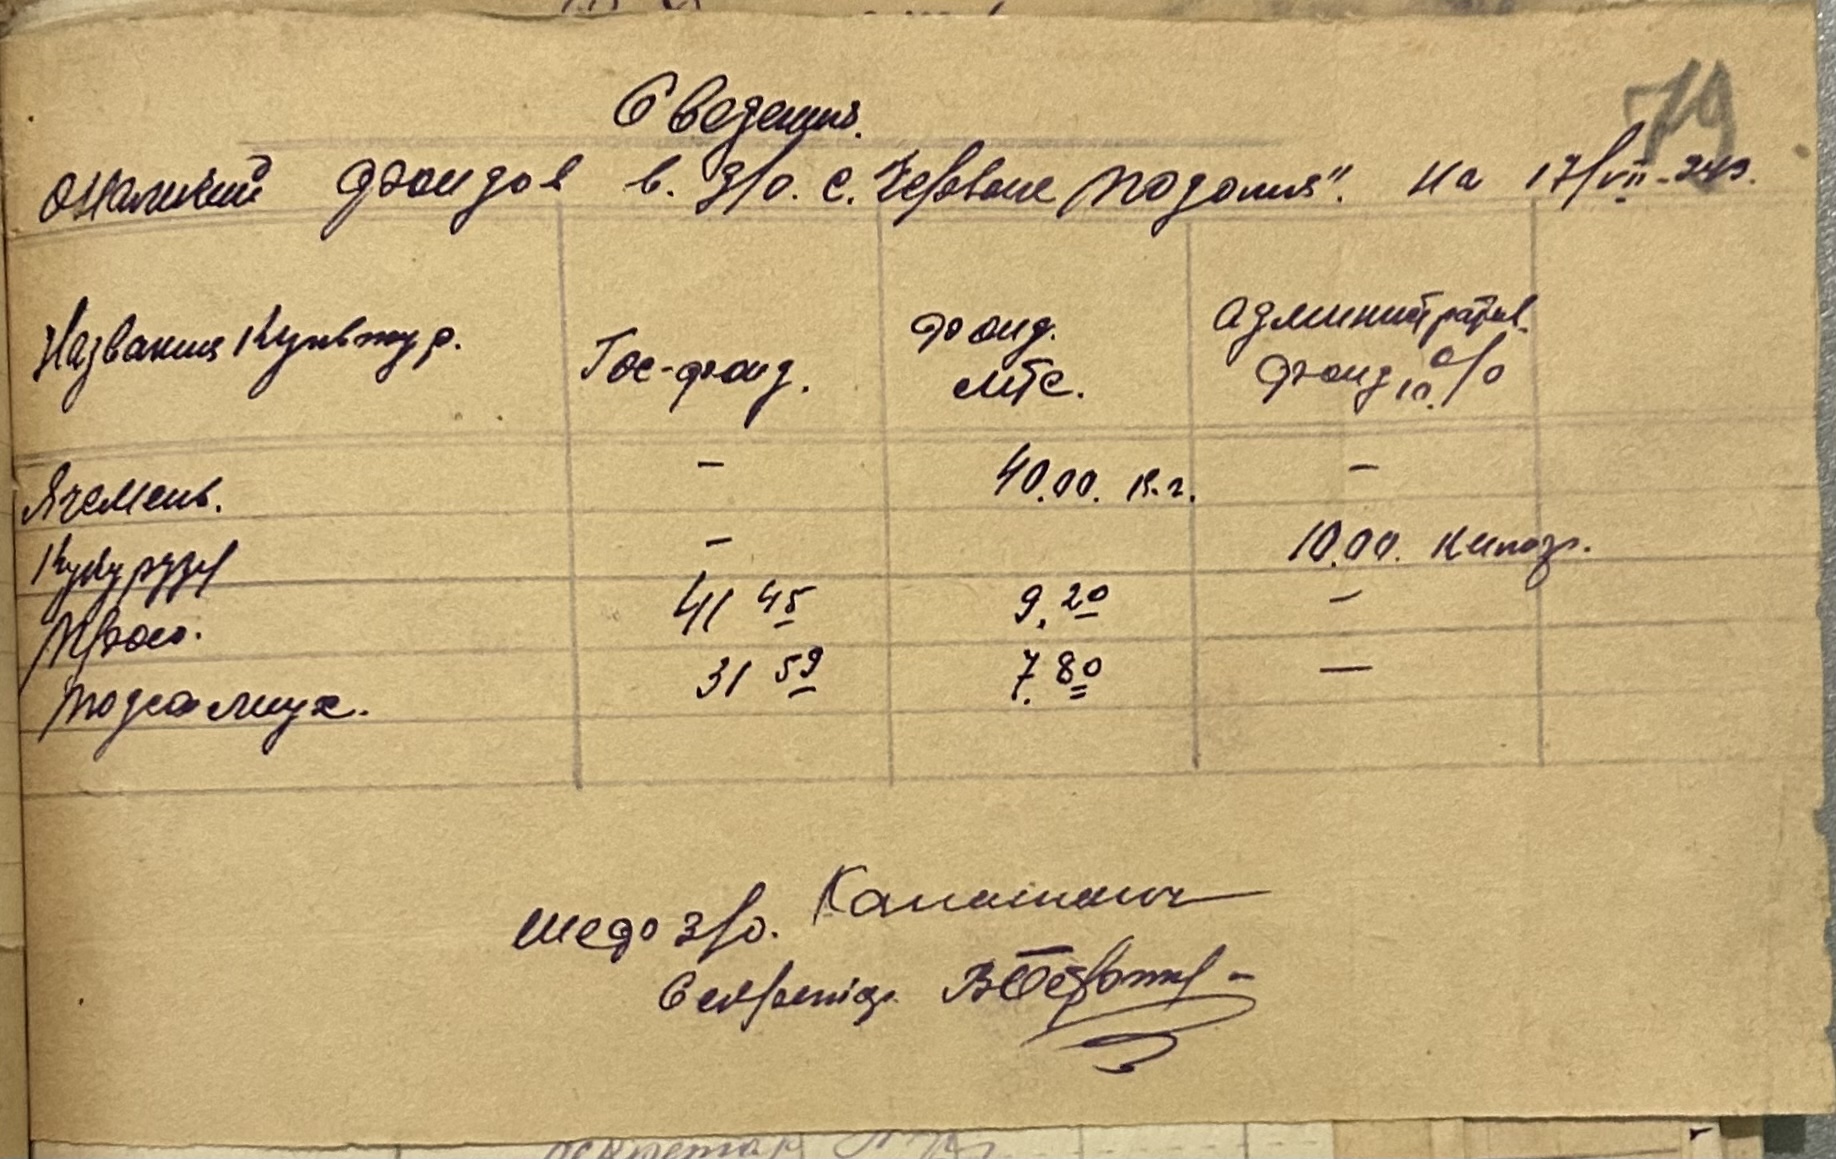 79
Сведения.
о наличии фондов в. З/о. с. "Червоне Подолия". на 17/VII-
Названия Культур. Гос-фонд. фонд. МТС. Административ. фонд 10 %
Ячмень. - 40.00. к.г. -
Кукуруза - 10.00. килогр.
Просо. 41 45 9.20 -
Подсолнух. 31 59 7.80 —
З/о.
Секретарь